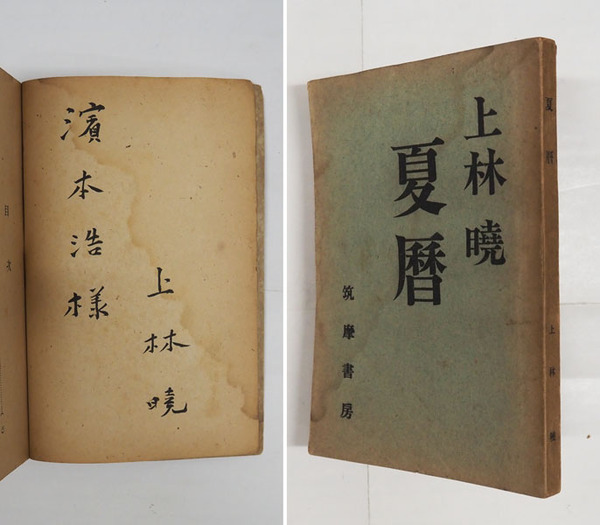 濱本浩樣
上林曉
目次
上林曉
夏暦
筑摩書房
夏暦
上林曉